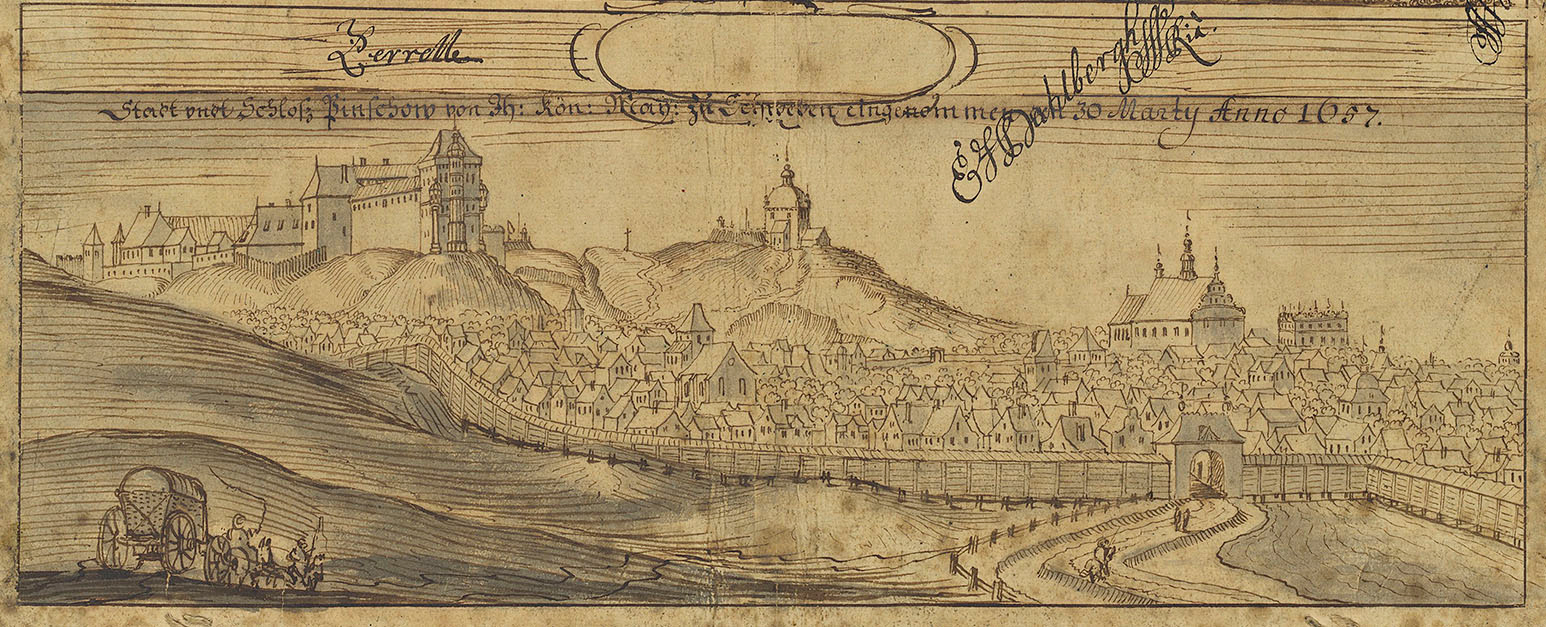 Perrelle
Stadt undt Schloß Pinschow von Ih: Kön: May: zu Schweden eingenommen den 30 Marty Anno 1657.
E J Dahlbergh